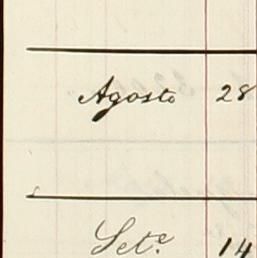 Agosto 28
Sete. 14